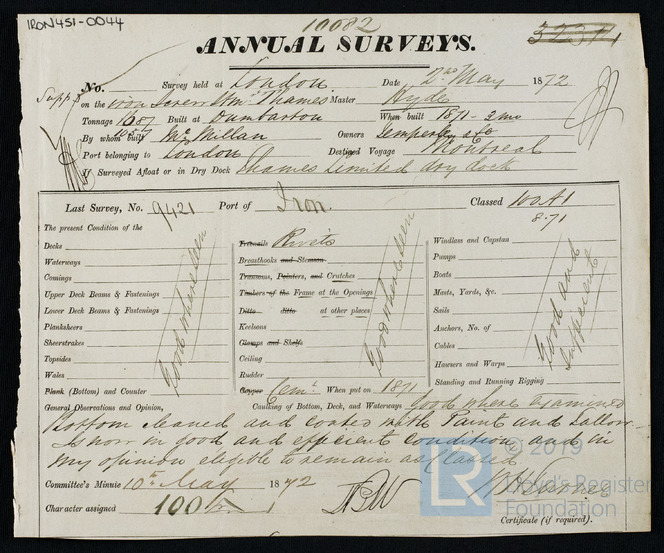 IRON451-0044
10082
32311
ANNUAL SURVEYS.
No. Survey held at London Date 2nd May 1872
Supp. on the iron Screw Stmr Thames Master Hyde
Tonnage 1687 Built at Dumbarton When built 1871 - 2 mo
1057
By whom built McMillan Owners Temperley & Co
Port belonging to London Destined Voyage Montreal
If Surveyed Afloat or in Dry Dock Thames Limited dry dock
Last Survey, No. 9421 Port of Iron. Classed 100A1
8.71
The present Condition of the
Decks
Waterways
Comings
Upper Deck Beams & Fastenings
Lower Deck Beams & Fastenings
Planksheers
Sheerstrakes
Topsides
Wales
Plank (Bottom) and Counter
Good where seen
Treenails Rivets
Breasthooks and Stemson
Transoms, Pointers, and Crutches
Timbers of the Frame at the Openings
Ditto ditto at other places
Keelsons
Clamps and Shelfs
Ceiling
Rudder
Copper Cemt. When put on 1871
Good where seen
Windlass and Capstan
Pumps
Boats
Masts, Yards, &c.
Sails
Anchors, No. of
Cables
Hawsers and Warps
Standing and Running Rigging
Good and sufficient
General Observations and Opinion, Caulking of Bottom, Deck, and Waterways Good where examined
Bottom cleaned and coated with Paint and Tallow.
is now in good and efficient condition and in
my opinion eligible to remain as Classed
Committee's Minute 10th May 1872
Character assigned 100A1
Certificate (if required).
© 2019
LR
Lloyd's Register
Foundation